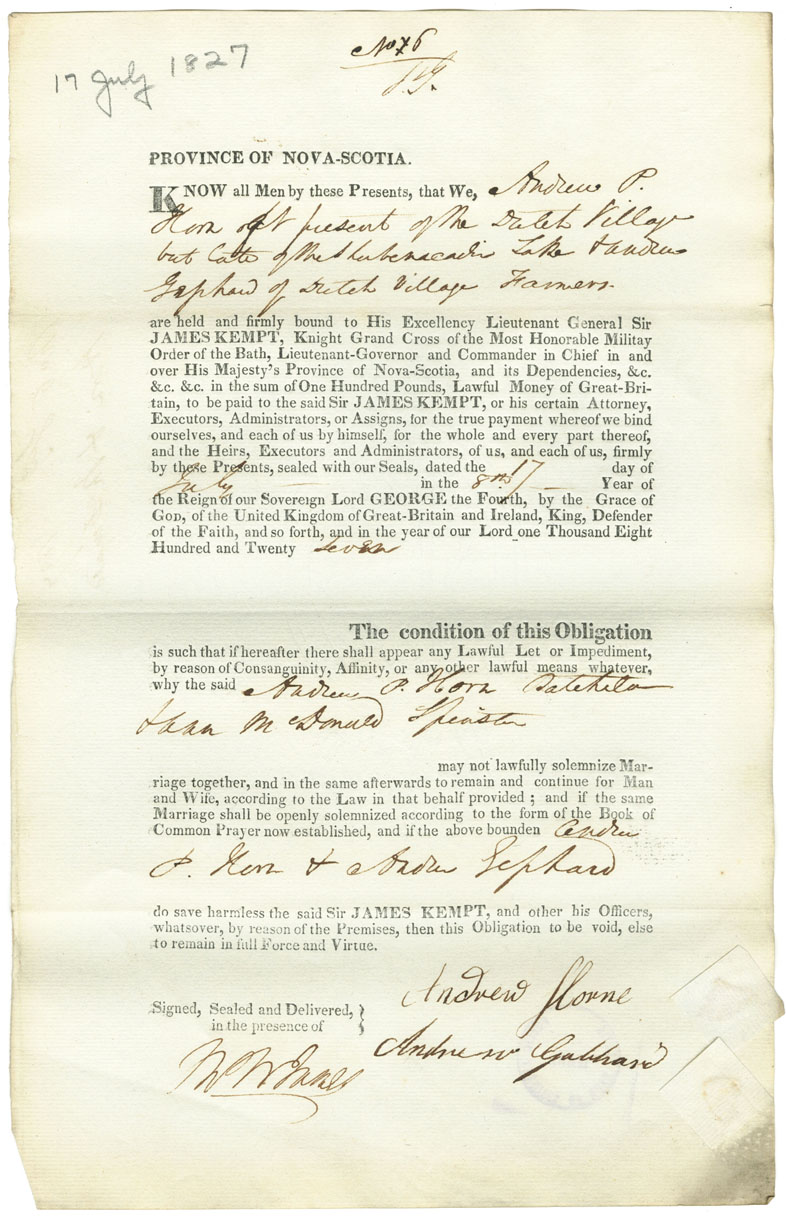 17 July 1827
No 76
PROVINCE OF NOVA-SCOTIA.
KNOW all Men by these Presents, that We, Andrew P.
Horn at present of the Dutch Village
but late of the Shubenacadie Lake & Andrew
Gephard of Dutch Village Farmers.
are held and firmly bound to His Excellency Lieutenant General Sir
JAMES KEMPT, Knight Grand Cross of the Most Honorable Militay
Order of the Bath, Lieutenant-Governor and Commander in Chief in and
over His Majesty's Province of Nova-Scotia, and its Dependencies, &c.
&c. &c. in the sum of One Hundred Pounds, Lawful Money of Great-Bri-
tain, to be paid to the said Sir JAMES KEMPT, or his certain Attorney,
Executors, Administrators, or Assigns, for the true payment whereof we bind
ourselves, and each of us by himself, for the whole and every part thereof,
and the Heirs, Executors and Administrators, of us, and each of us, firmly
by these Presents, sealed with our Seals, dated the 17 day of
July in the 8th Year of
the Reign of our Sovereign Lord GEORGE the Fourth, by the Grace of
GOD, of the United Kingdom of Great-Britain and Ireland, King, Defender
of the Faith, and so forth, and in the year of our Lord one Thousand Eight
Hundred and Twenty Seven
The condition of this Obligation
is such that if hereafter there shall appear any Lawful Let or Impediment,
by reason of Consanguinity, Affinity, or any other lawful means whatever,
why the said Andrew P. Horn Batchelor
& Ann McDonald Spinster
may not lawfully solemnize Mar-
riage together, and in the same afterwards to remain and continue for Man
and Wife, according to the Law in that behalf provided ; and if the same
Marriage shall be openly solemnized according to the form of the Book of
Common Prayer now established, and if the above bounden Andrew
P. Horn & Andrew Gephard
do save harmless the said Sir JAMES KEMPT, and other his Officers,
whatsover, by reason of the Premises, then this Obligation to be void, else
to remain in full Force and Virtue.
Andrew Horne
Signed, Sealed and Delivered, }
in the presence of
Andrew Gabhard